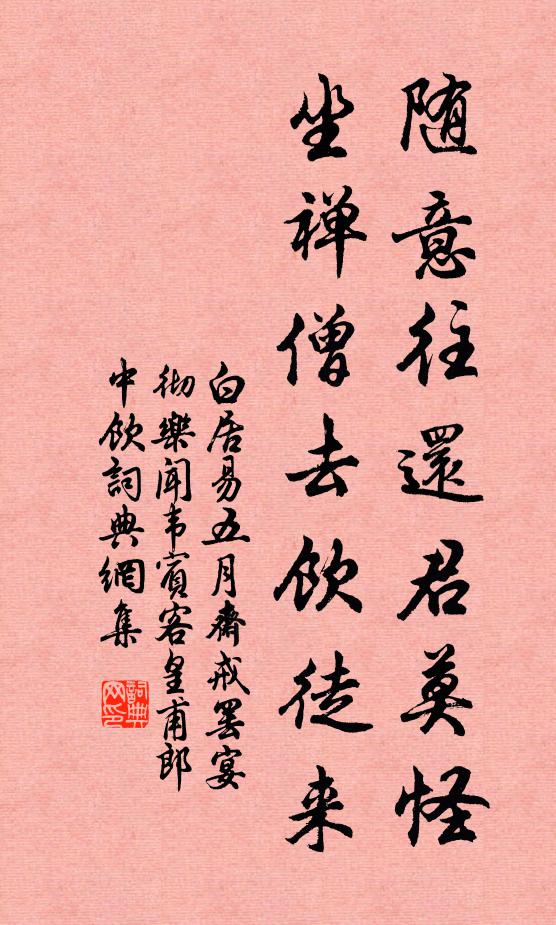 随意往還君莫怪
坐禅僧去飲徒来
白居易五月齋戒罢宴
彻樂聞韦賓客皇甫郎
中飲詞典網集
詞典
网印